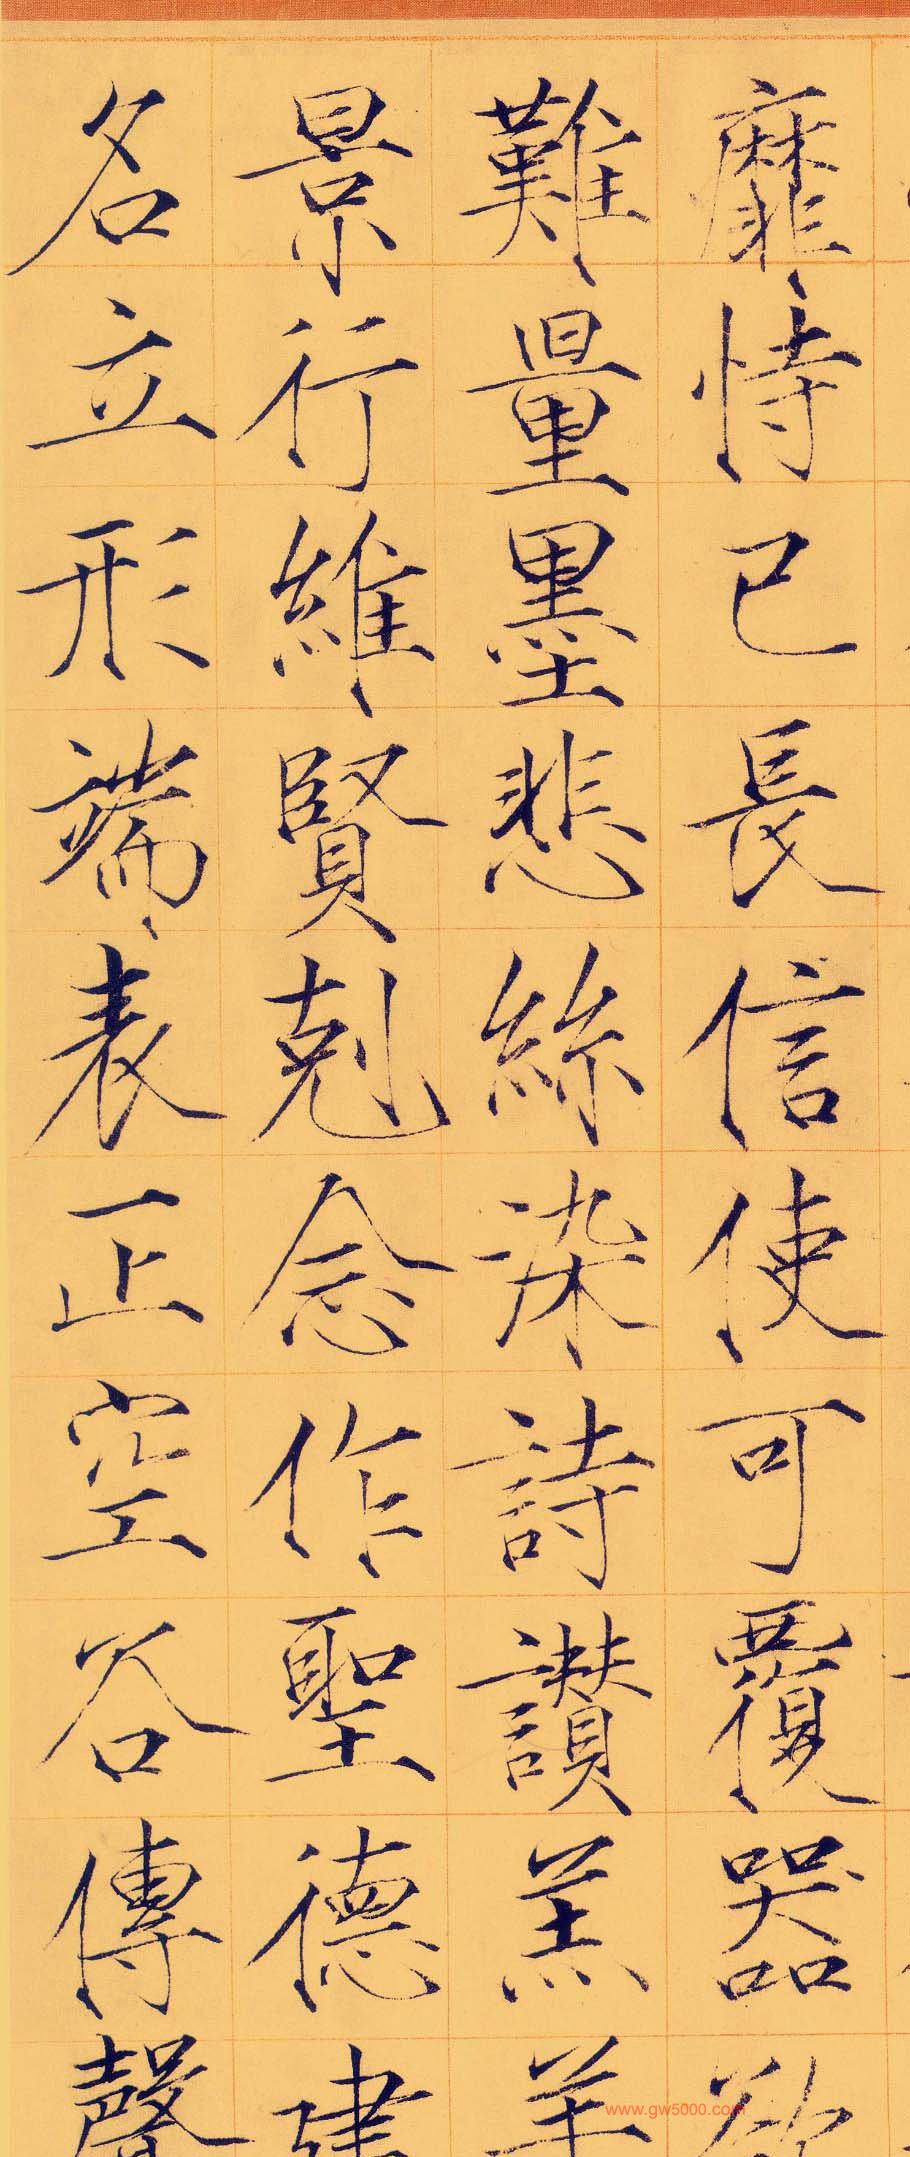 靡恃已長信使可覆器欲
難量墨悲絲染詩讚羔羊
景行維賢剋念作聖德建
名立形端表正空谷傳聲
www.gw5000.com